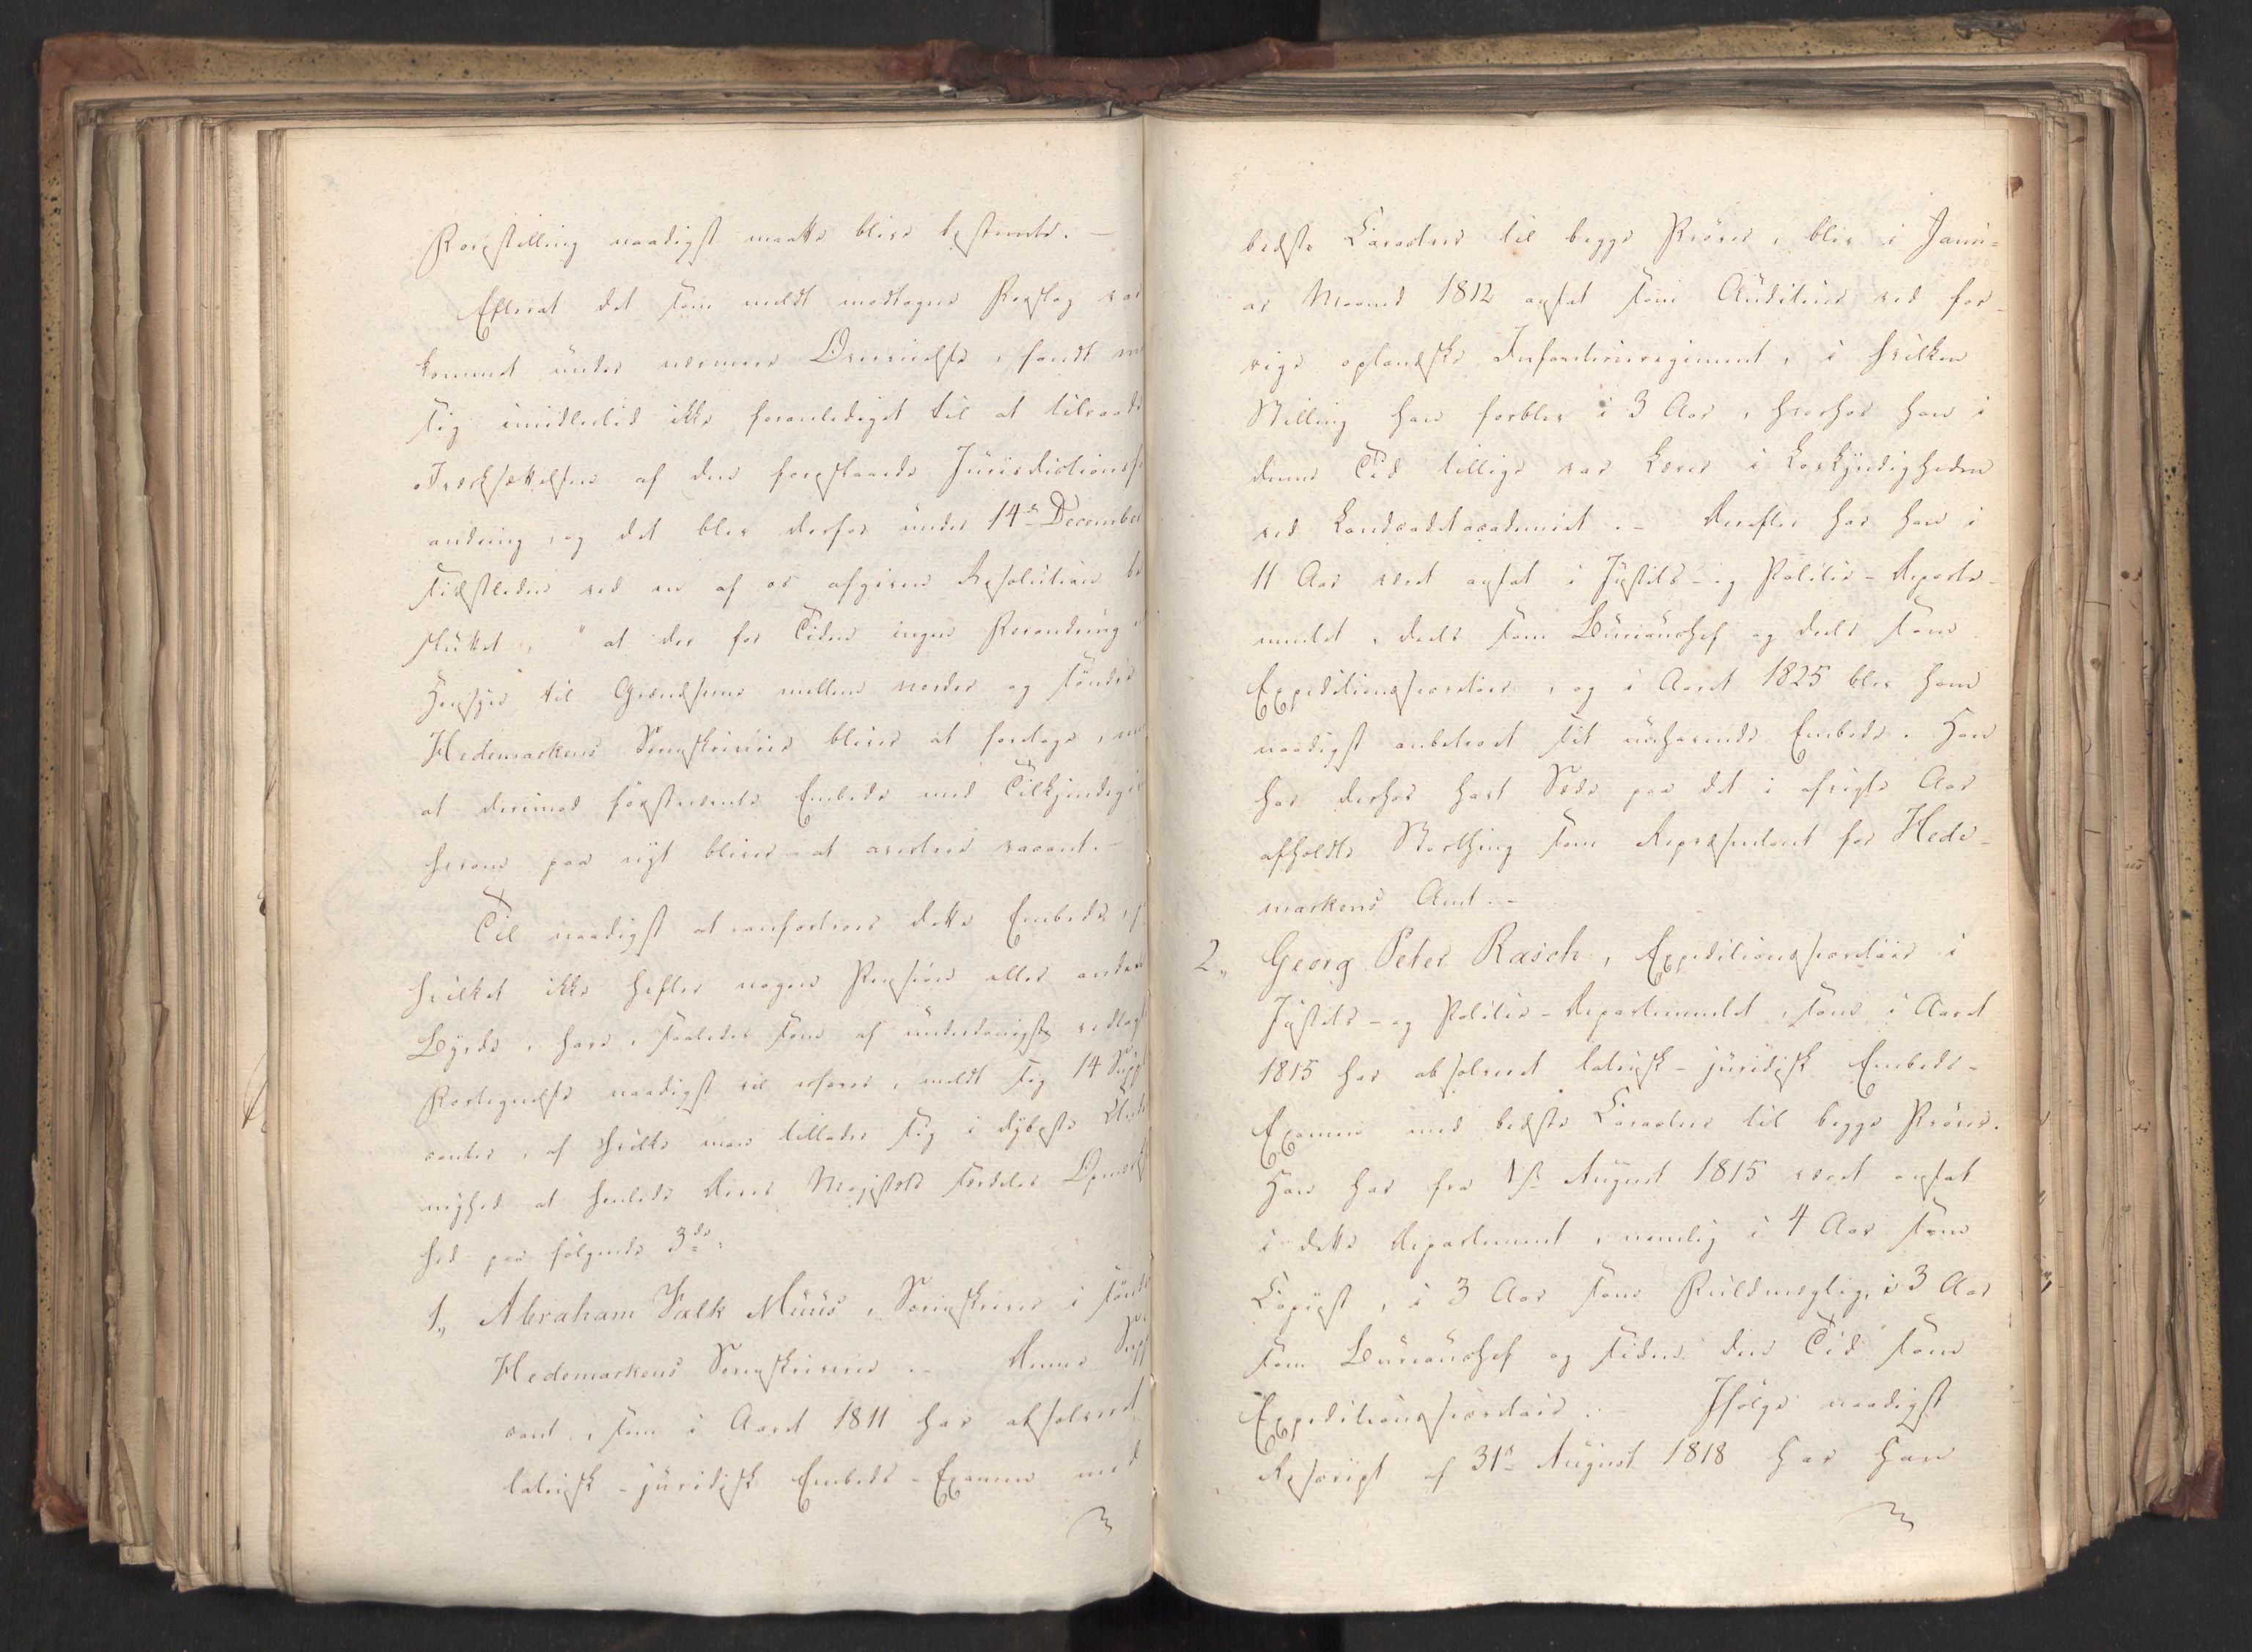 Forestilling naadigst maatte blive bestemte. —
Efterat det som meldt modtagne Forslag var
kommet under nærmere Overveielse, fandt m
sig imidlertid ikke foranlediget til at tilraade
Iværksættelsen af den foreslaaede Jurisdictionsfor
andring, og det blev derfor under 14de December
sidstleden ved en af os afgiven Resolution be
sluttet, "at der for Tiden ingen Forandring
Hensyn til Grændserne mellem nordre og søndre
Hedemarkens Sorenskriverier bliver at foretage, m
at derimod førstnævnte Embede ved Tilkjendegiv
herom paa nyt bliver at avertere vacant. —
Til naadigst at vanfortroes dette Embede,
hvilket ikke hefter nogen Pension eller anden
Byrde, have, saaledes som af underdanigst vedlagt
Fortegnelse naadigst vil erfares, meldt sig 14 Supp
canter, af hvilke man tillader sig i dybeste Under
nighed at henlede Deres Majestæts særdeles Opmærk
hed paa følgende 3de:
1, Abraham Falk Müüs, Sorenskriver i søndre
Hedemarkens Sorenskriverie. — Denne Supp
cant, som i Aaret 1811 har absolveret
latinsk-juridisk Embeds-Examen med
bedste Caracteer til begge Prøver, blev i Janu-
ar Maaned 1812 ansat som Auditeur ved for-
rige oplandske Infanterieregiment, i hvilken
Stilling han forblev i 3 Aar, hvorhos han i
denne Tid tillige var Lærer i Lovkyndigheden
ved Landcadetacademiet. — Derefter har han i
11 Aar været ansat i Justits- og Politie-Departe-
mentet, deels som Bureauchef og deels som
Expeditionssecretair, og i Aaret 1825 blev ham
naadigst anbetroet sit nuhavende Embede. Han
har derhos havt Sæde paa det i afvigte Aar
afholdte Storthing som Repræsentant for Hede-
markens Amt. —
2, Georg Peter Rasch, Expeditionssecretair i
Justits- og Politie-Departementet, som i Aaret
1815 har absolveret latinsk-juridisk Embeds-
Examen med bedste Caracteer til begge Prøver.
Han har fra 1ste August 1815 været ansat
i dette Departement, nemlig i 4 Aar som
Copiist, i 3 Aar som Fuldmægtig, i 3 Aar
som Bureauchef og siden den Tid som
Expeditionssecretair. — Ifølge naadigst
Rescript af 31te August 1818 har han